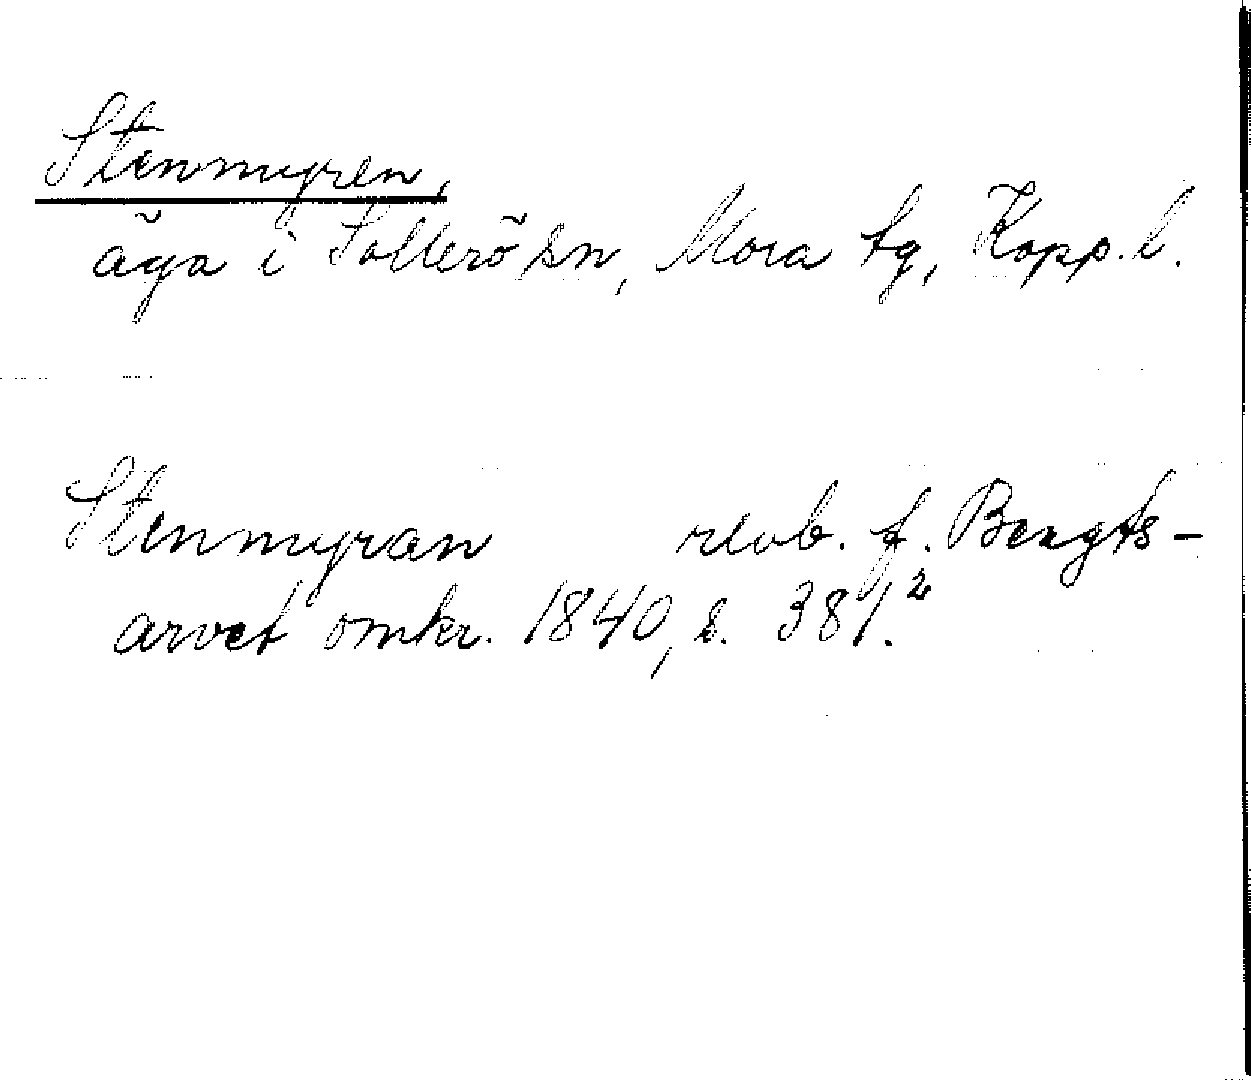 Stenmyren,
äga i Sollerö sn, Mora tg, Kopp. l.
Stenmyran revb. f. Bengts-
arvet omkr. 1840, s. 381.²